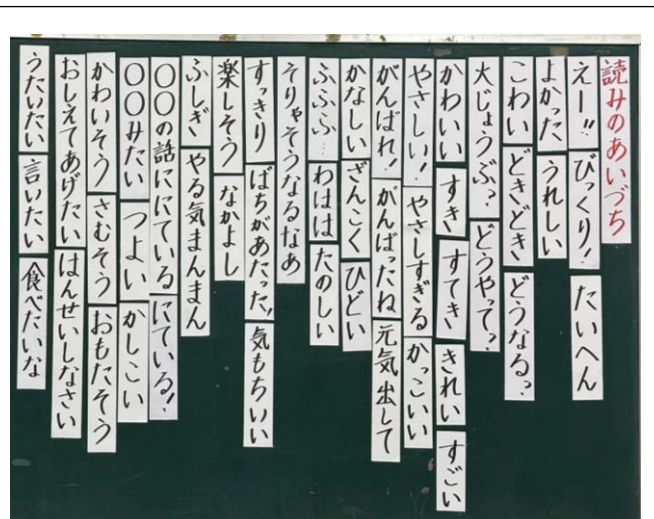 読みのあいづち
えー!! びっくり! たいへん
よかった うれしい
こわい どきどき どうなる?
大じょうぶ? どうやって?
かわいい すき すてき きれい すごい
やさしい! やさしすぎる かっこいい
がんばれ! がんばったね 元気出して
かなしい ざんこく ひどい
ふふふ… わはは たのしい
そりゃそうなるなあ
すっきり ばちがあたった! 気もちいい
楽しそう なかよし
ふしぎ やる気まんまん
〇〇の話ににている にている!
〇〇みたい つよい かしこい
かわいそう さむそう おもたそう
おしえてあげたい はんせいしなさい
うたいたい 言いたい 食べたいな